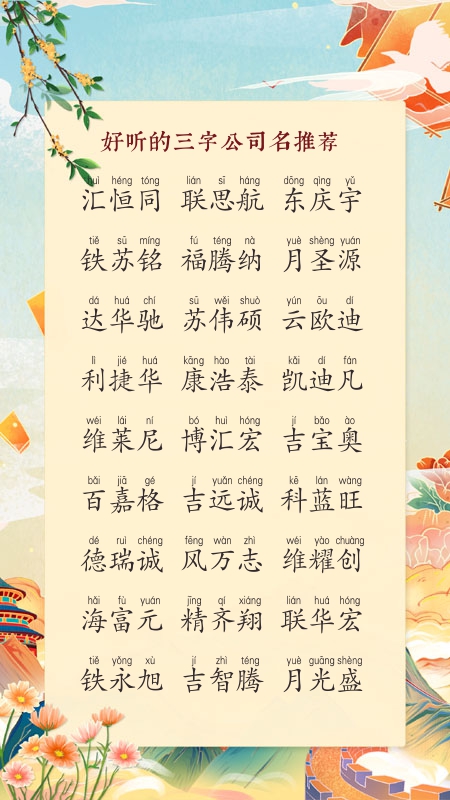 好听的三字公司名推荐
huì héng tóng lián sī háng dōng qìng yǔ
汇恒同 联思航 东庆宇
tiě sū míng fú téng nà yuè shèng yuán
铁苏铭 福腾纳 月圣源
dá huá chí sū wěi shuò yún ōu dí
达华驰 苏伟硕 云欧迪
lì jié huá kāng hào tài kǎi dí fán
利捷华 康浩泰 凯迪凡
wéi lái ní bó huì hóng jí bǎo ào
维莱尼 博汇宏 吉宝奥
bǎi jiā gé jí yuǎn chéng kē lán wàng
百嘉格 吉远诚 科蓝旺
dé ruì chéng fēng wàn zhì wéi yào chuàng
德瑞诚 风万志 维耀创
hǎi fù yuán jīng qí xiáng lián huá hóng
海富元 精齐翔 联华宏
tiě yǒng xù jí zhì téng yuè guāng shèng
铁永旭 吉智腾 月光盛